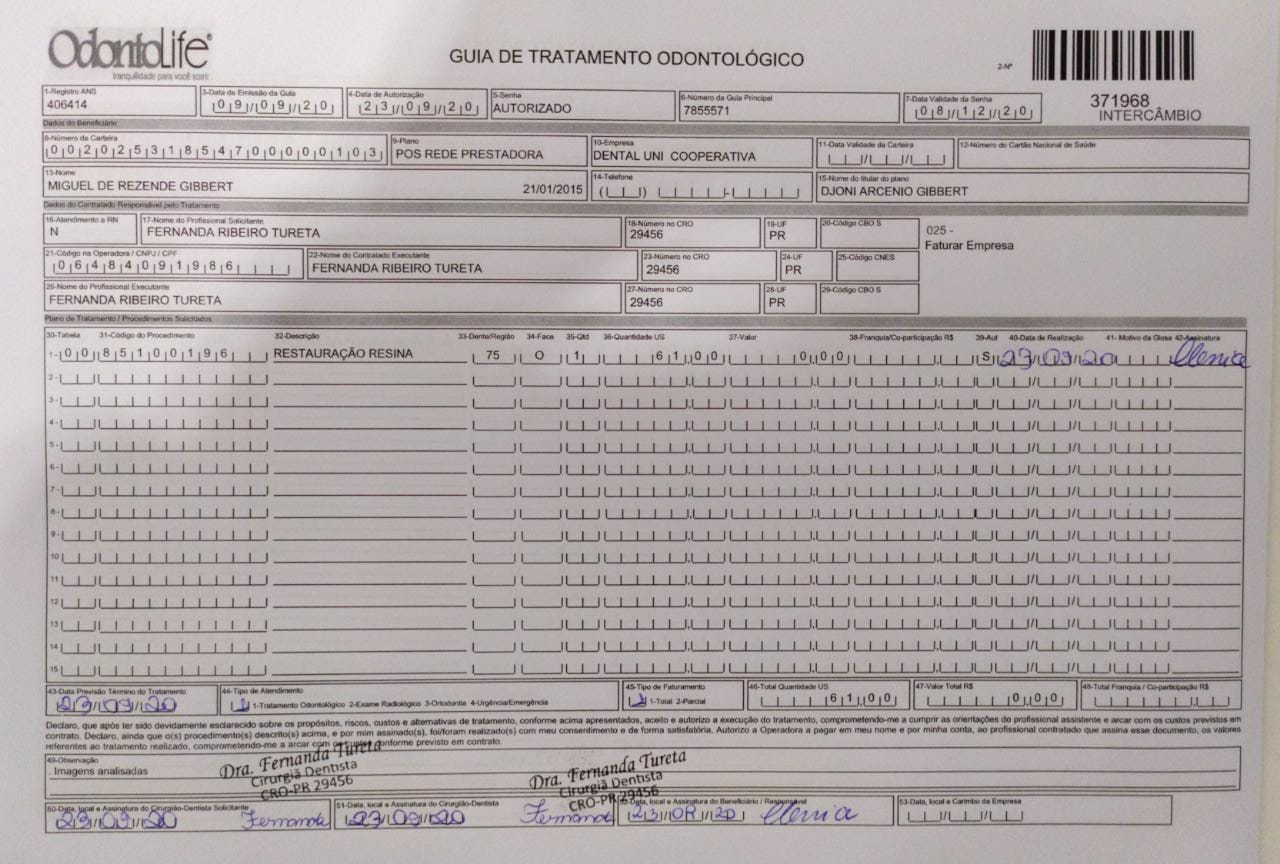 OdontoLife
tranquilidade para você sorrir
GUIA DE TRATAMENTO ODONTOLÓGICO
2-Nº
371968
INTERCÂMBIO
1-Registro ANS
406414
3-Data de Emissão da Guia
09/09/20
4-Data de Autorização
23/09/20
5-Senha
AUTORIZADO
6-Número da Guia Principal
7855571
7-Data Validade da Senha
08/12/20
Dados do Beneficiário
8-Número da Carteira
00202531854700000103
9-Plano
POS REDE PRESTADORA
10-Empresa
DENTAL UNI COOPERATIVA
11-Data Validade da Carteira
12-Número do Cartão Nacional de Saúde
13-Nome
MIGUEL DE REZENDE GIBBERT 21/01/2015
14-Telefone
15-Nome do titular do plano
DJONI ARCENIO GIBBERT
Dados do Contratado Responsável pelo Tratamento
16-Atendimento a RN
N
17-Nome do Profissional Solicitante
FERNANDA RIBEIRO TURETA
18-Número no CRO
29456
19-UF
PR
20-Código CBO S
025 -
Faturar Empresa
21-Código na Operadora / CNPJ / CPF
06484091986
22-Nome do Contratado Executante
FERNANDA RIBEIRO TURETA
23-Número no CRO
29456
24-UF
PR
25-Código CNES
26-Nome do Profissional Executante
FERNANDA RIBEIRO TURETA
27-Número no CRO
29456
28-UF
PR
29-Código CBO S
Plano de Tratamento / Procedimentos Solicitados
30-Tabela 31-Código do Procedimento 32-Descrição 33-Dente/Região 34-Face 35-Qtd 36-Quantidade US 37-Valor 38-Franquia/Co-participação R$ 39-Aut 40-Data de Realização 41- Motivo da Glosa 42-Assinatura
1- 00 85100196 RESTAURAÇÃO RESINA 75 O 1 61,00 0,00 S 23/09/20 Clenia
2-
3-
4-
5-
6-
7-
8-
9-
10
11
12
13
14
15
43-Data Previsão Término do Tratamento
23/09/20
44-Tipo de Atendimento
1 1-Tratamento Odontológico 2-Exame Radiológico 3-Ortodontia 4-Urgência/Emergência
45-Tipo de Faturamento
1 1-Total 2-Parcial
46-Total Quantidade US
61,00
47-Valor Total R$
0,00
48-Total Franquia / Co-participação R$
Declaro, que após ter sido devidamente esclarecido sobre os propósitos, riscos, custos e alternativas de tratamento, conforme acima apresentados, aceito e autorizo a execução do tratamento, comprometendo-me a cumprir as orientações do profissional assistente e arcar com os custos previstos em
contrato. Declaro, ainda que o(s) procedimento(s) descrito(s) acima, e por mim assinado(s), foi/foram realizado(s) com meu consentimento e de forma satisfatória. Autorizo a Operadora a pagar em meu nome e por minha conta, ao profissional contratado que assina esse documento, os valores
referentes ao tratamento realizado, comprometendo-me a arcar com os custos conforme previsto em contrato.
49-Observação
. Imagens analisadas
Dra. Fernanda Tureta
Cirurgiã Dentista
CRO-PR 29456
Dra. Fernanda Tureta
Cirurgiã Dentista
CRO-PR 29456
50-Data, local e Assinatura do Cirurgião-Dentista Solicitante
23/09/20 Fernanda
51-Data, local e Assinatura do Cirurgião-Dentista
23/09/20 Fernanda
52-Data, local e Assinatura do Beneficiário / Responsável
23/09/20 Clenia
53-Data, local e Carimbo da Empresa